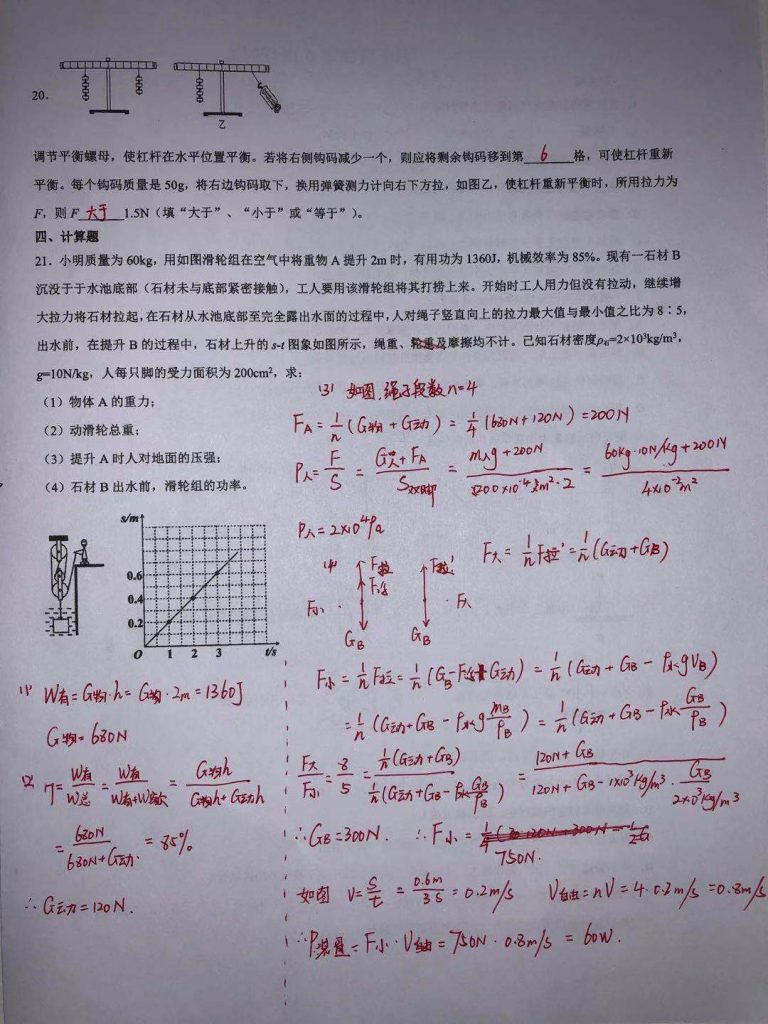 20.
乙
调节平衡螺母，使杠杆在水平位置平衡。若将右侧钩码减少一个，则应将剩余钩码移到第 6 格，可使杠杆重新
平衡。每个钩码质量是 50g，将右边钩码取下，换用弹簧测力计向右下方拉，如图乙，使杠杆重新平衡时，所用拉力为
F，则 F 大于 1.5N（填“大于”、“小于”或“等于”）。
四、计算题
21．小明质量为 60kg，用如图滑轮组在空气中将重物 A 提升 2m 时，有用功为 1360J，机械效率为 85%。现有一石材 B
沉没于于水池底部（石材未与底部紧密接触），工人要用该滑轮组将其打捞上来。开始时工人用力但没有拉动，继续增
大拉力将石材拉起，在石材从水池底部至完全露出水面的过程中，人对绳子竖直向上的拉力最大值与最小值之比为 8∶5，
出水前，在提升 B 的过程中，石材上升的 s-t 图象如图所示，绳重、轮重及摩擦均不计。已知石材密度ρ石=2×10³kg/m³，
g=10N/kg，人每只脚的受力面积为 200cm²，求：
（1）物体 A 的重力；
（2）动滑轮总重；
（3）提升 A 时人对地面的压强；
（4）石材 B 出水前，滑轮组的功率。
s/m
0.6
0.4
0.2
O 1 2 3 t/s
(1) W有=G物·h=G物·2m=1360J
G物=680N
(2) η=W有/W总=W有/(W有+W额)=G物h/(G物h+G动h)
=680N/(680N+G动)=85%
∴G动=120N.
(3) 如图,绳子段数n=4
FA=1/n(G物+G动)=1/4(680N+120N)=200N
P人=F/S=(G人+FA)/S双脚=(m人g+200N)/(200×10⁻⁴m²·2)=(60kg·10N/kg+200N)/(4×10⁻²m²)
P人=2×10⁴Pa
(4) F拉 F浮 F小 GB F拉' F大 GB
F大=1/n F拉'=1/n(G动+GB)
F小=1/n F拉=1/n(GB-F浮+G动)=1/n(G动+GB-ρ水gVB)
=1/n(G动+GB-ρ水g mB/ρB)=1/n(G动+GB-ρ水 GB/ρB)
F大/F小=8/5=1/n(G动+GB)/1/n(G动+GB-ρ水 GB/ρB)=(120N+GB)/(120N+GB-1×10³kg/m³·GB/2×10³kg/m³)
∴GB=300N. ∴F小=
750N.
如图 V=S/t=0.6m/3s=0.2m/s V自由=nV=4·0.2m/s=0.8m/s
∴P装置=F小·V自由=750N·0.8m/s=60W.